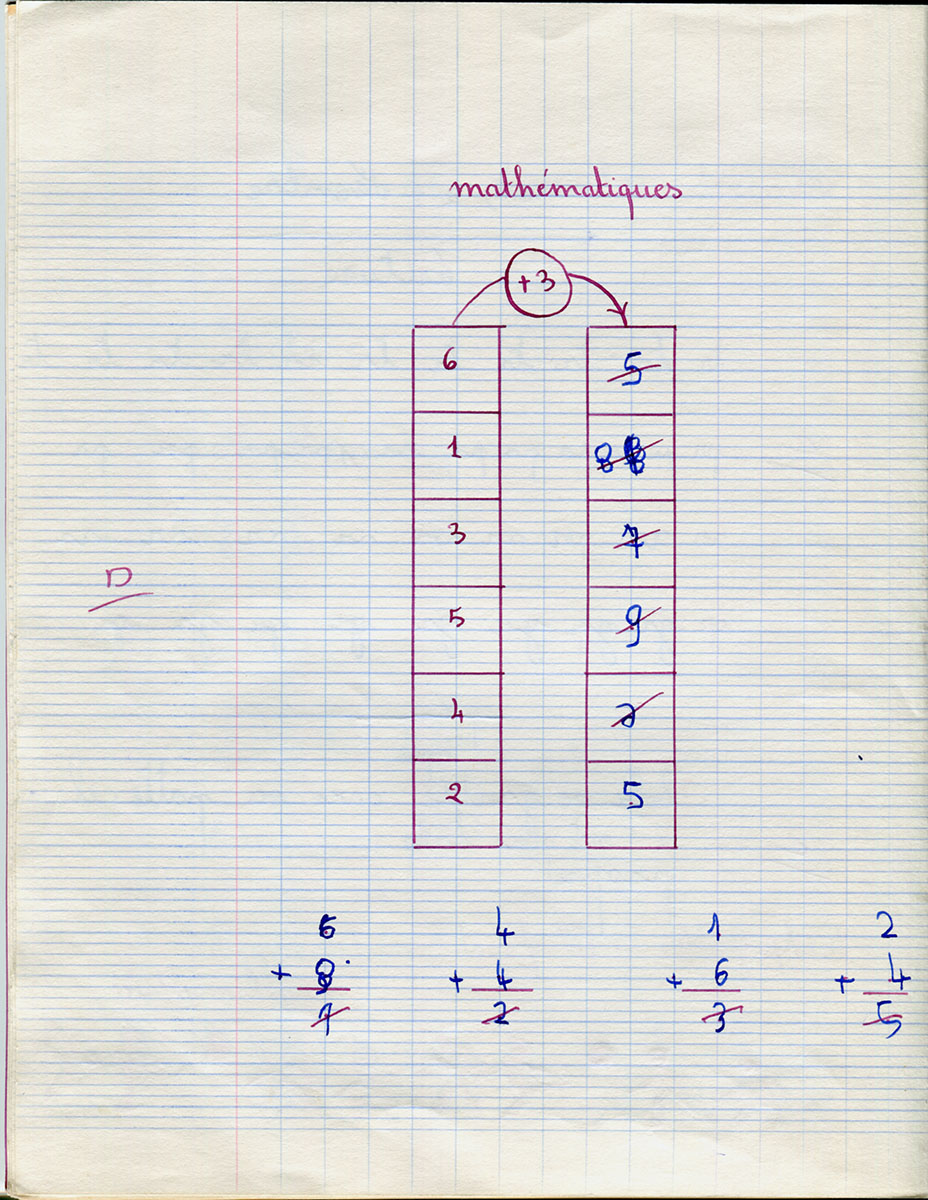 mathématiques
+3
6 5
1
3 7
5 9
4 2
2 5
D
6 4 1 2
+ + 4 + 6 + 4
2 3 5